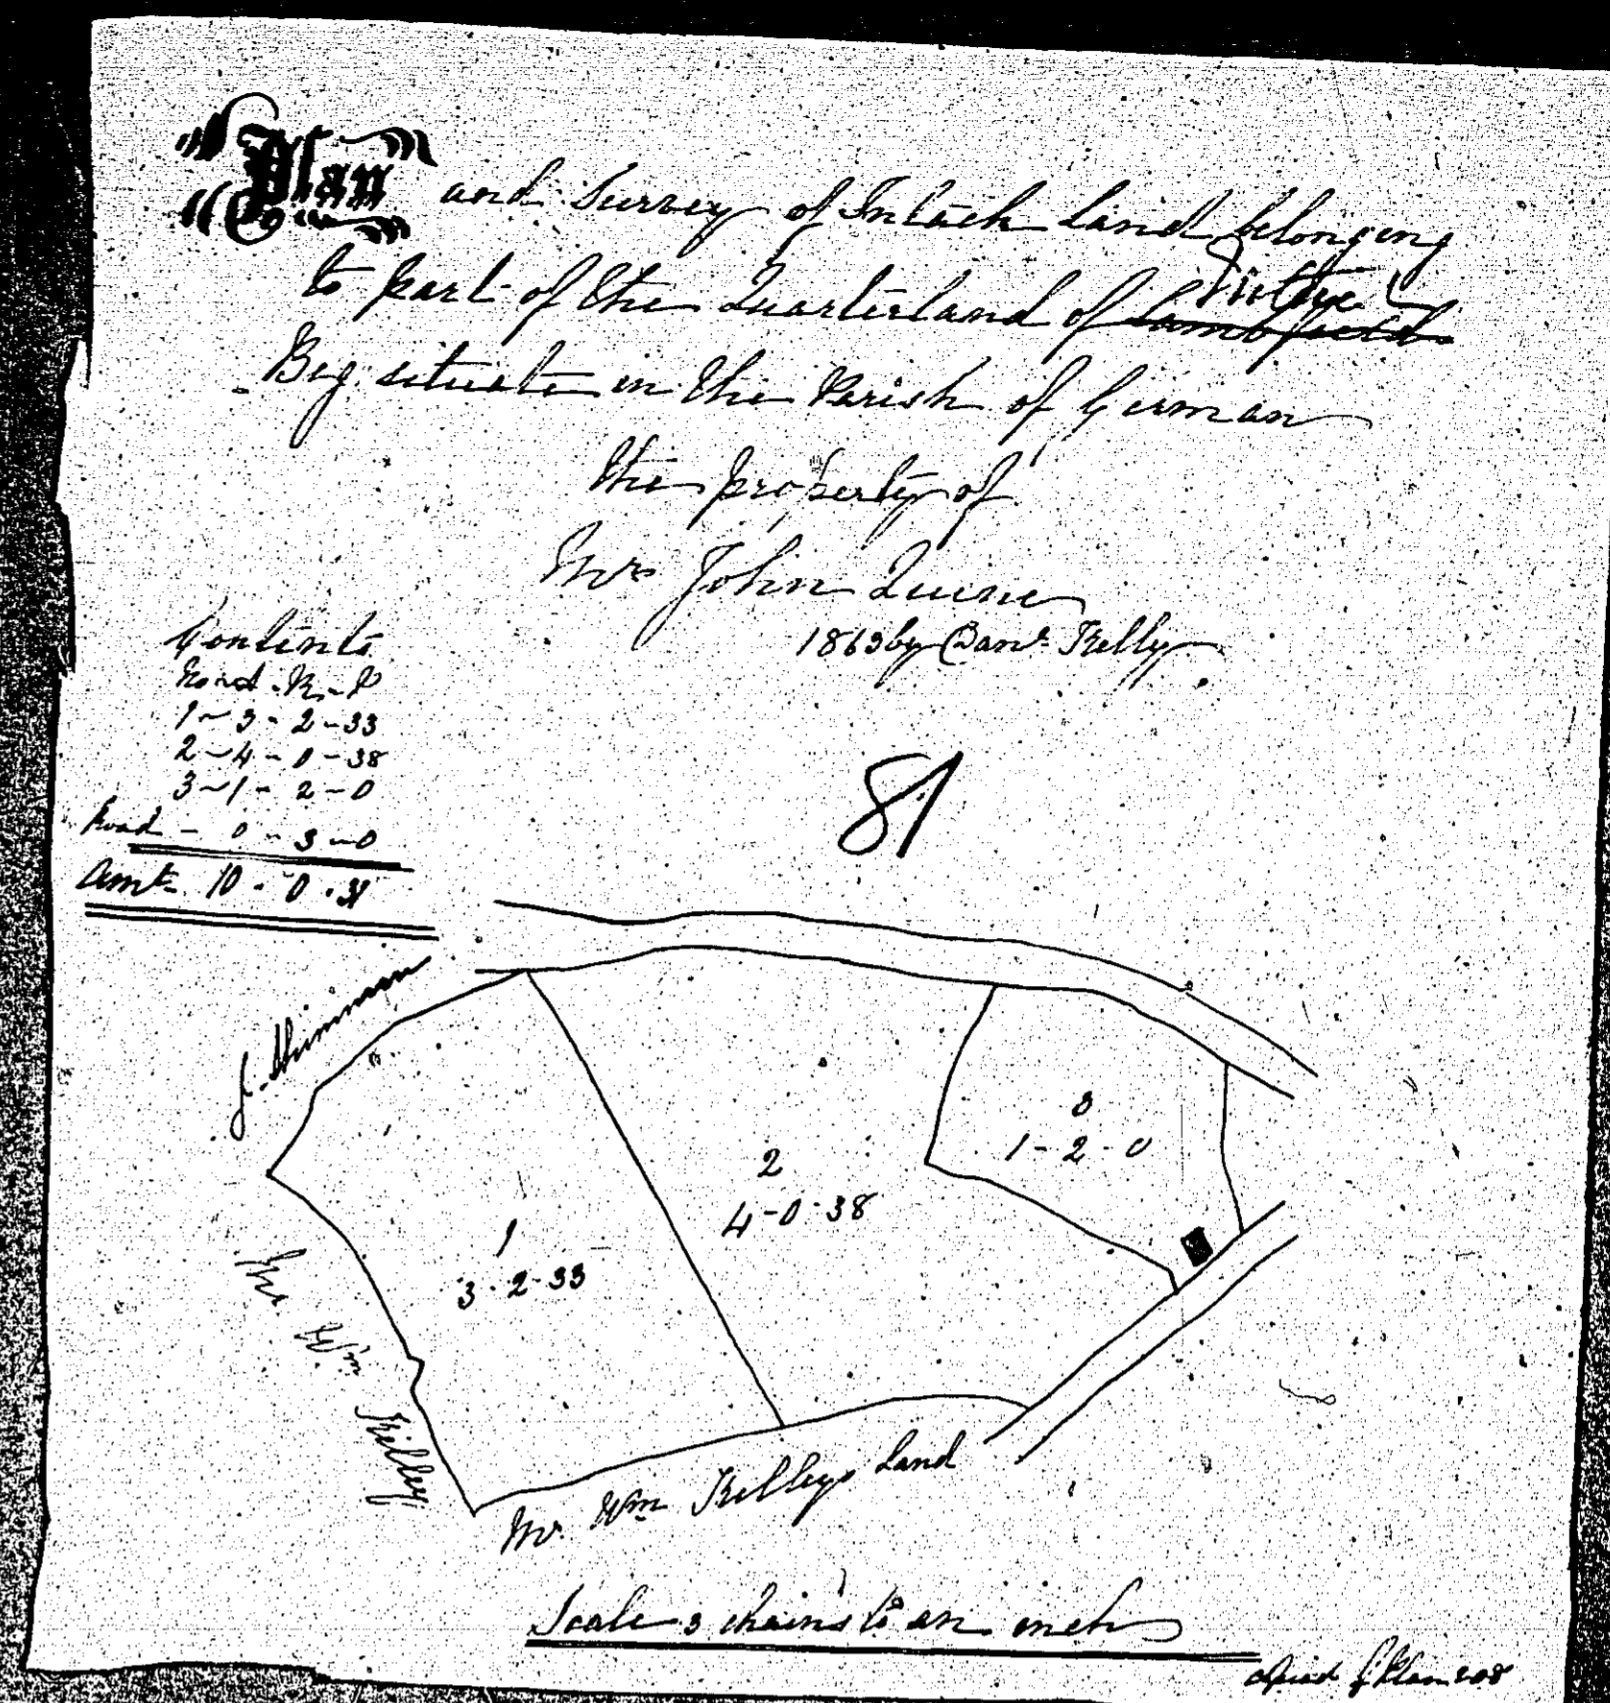 Plan and Survey of Intack Land belonging
to part of the Quarterland of Lambfield
Beg situate in the Parish of German
the property of
Mr John Quine
1863 by Danl Kelly
Contents
R - P
1 - 3 - 2 - 33
2 - 4 - 0 - 38
3 - 1 - 2 - 0
Road - 0 - 3 - 0
Amt 10 - 0 - 31
81
J. Shimmon
1
3 - 2 - 33
2
4 - 0 - 38
3
1 - 2 - 0
Mr Wm Kelley
Mr. Wm Kelleys Land
Scale 3 chains to an inch